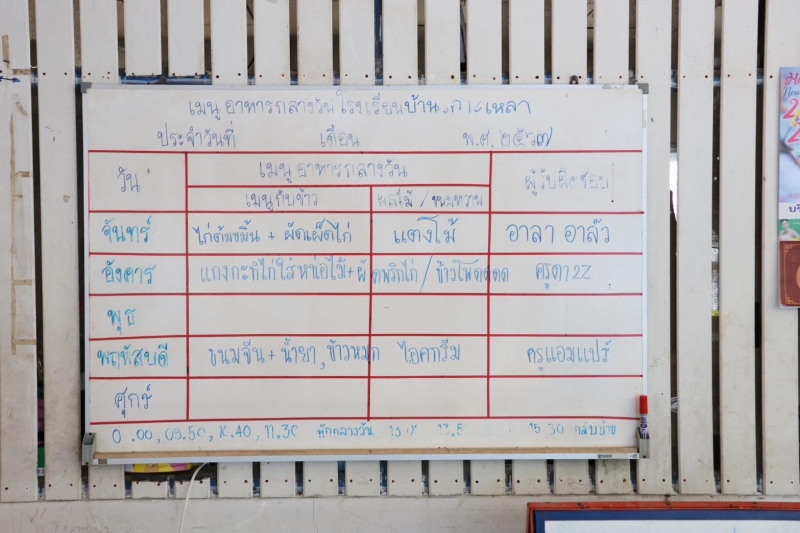 เมนูอาหารกลางวันโรงเรียนบ้าน
ประจำวันที่ เดือน พ.ศ. ๒๕๖๗
วัน เมนูอาหารกลางวัน ผู้รับผิดชอบ
เมนูกับข้าว ผลไม้ / ขนมหวาน
จันทร์ ไก่ต้มขมิ้น + ผัดเผ็ดไก่ แตงโม้ อาลา อาลัว
อังคาร แกงกะทิไก่ใส่หน่อไม้ + ผัดพริกไก่ / ข้าวโพดคลุก
พุธ
พฤหัสบดี ขนมจีน + น้ำยา, ข้าวหมก ไอศกรีม ครูแอมแปร์
ศุกร์
09.50, 11.30 พักกลางวัน กลับบ้าน